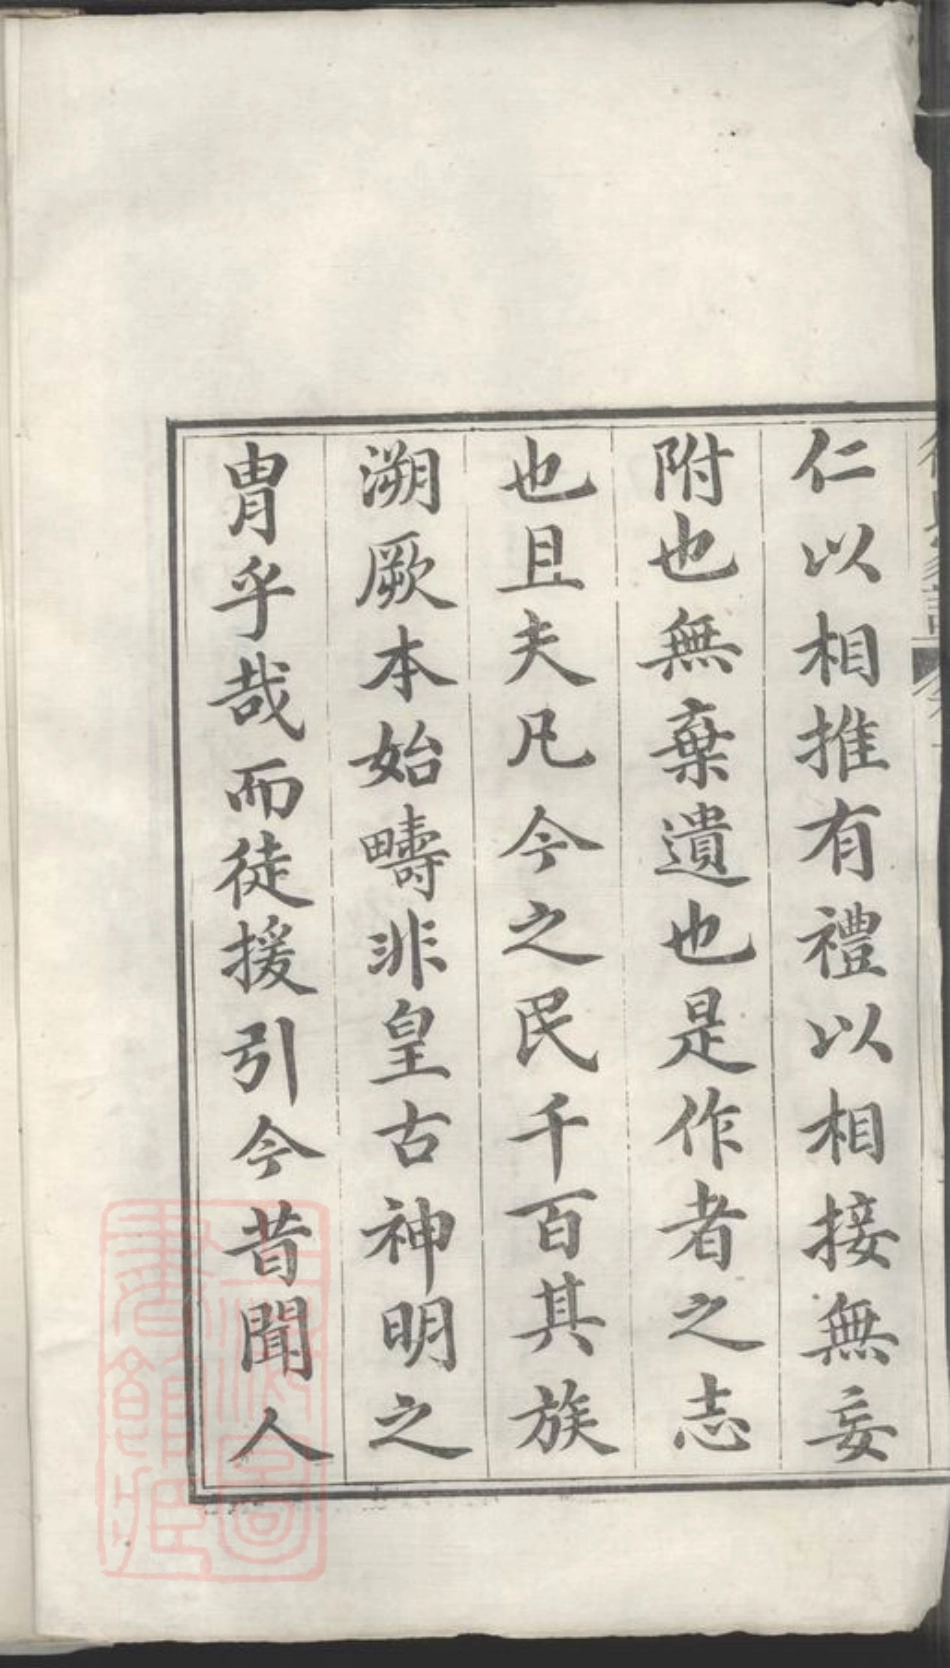 仁以相推有禮以相接無妄
附也無棄遺也是作者之志
也且夫凡今之民千百其族
溯厥本始疇非皇古神明之
胄乎哉而徒援引今昔聞人